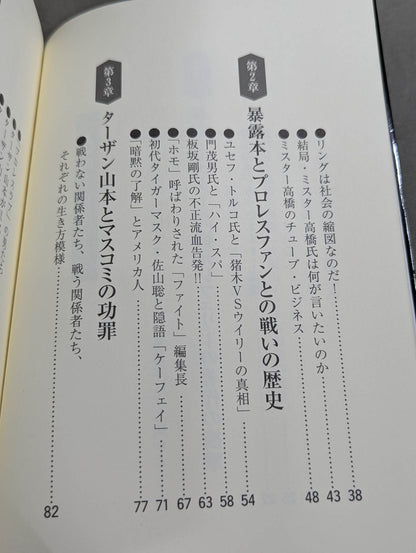 ●リングは社会の縮図なのだ！……38
●結局・ミスター高橋氏は何が言いたいのか……43
●ミスター高橋のチューブ・ビジネス……48
第2章 暴露本とプロレスファンとの戦いの歴史
●ユセフ・トルコ氏と「猪木VSウイリーの真相」……54
●門茂男氏と「ハイ・スパ」……58
●板坂剛氏の不正流血告発!!……63
●「ホモ」呼ばわりされた「ファイト」編集長……67
●初代タイガーマスク・佐山聡と隠語「ケーフェイ」……71
●「暗黙の了解」とアメリカ人……77
第3章 ターザン山本とマスコミの功罪
●戦わない関係者たち、戦う関係者たち、
それぞれの生き方模様……82